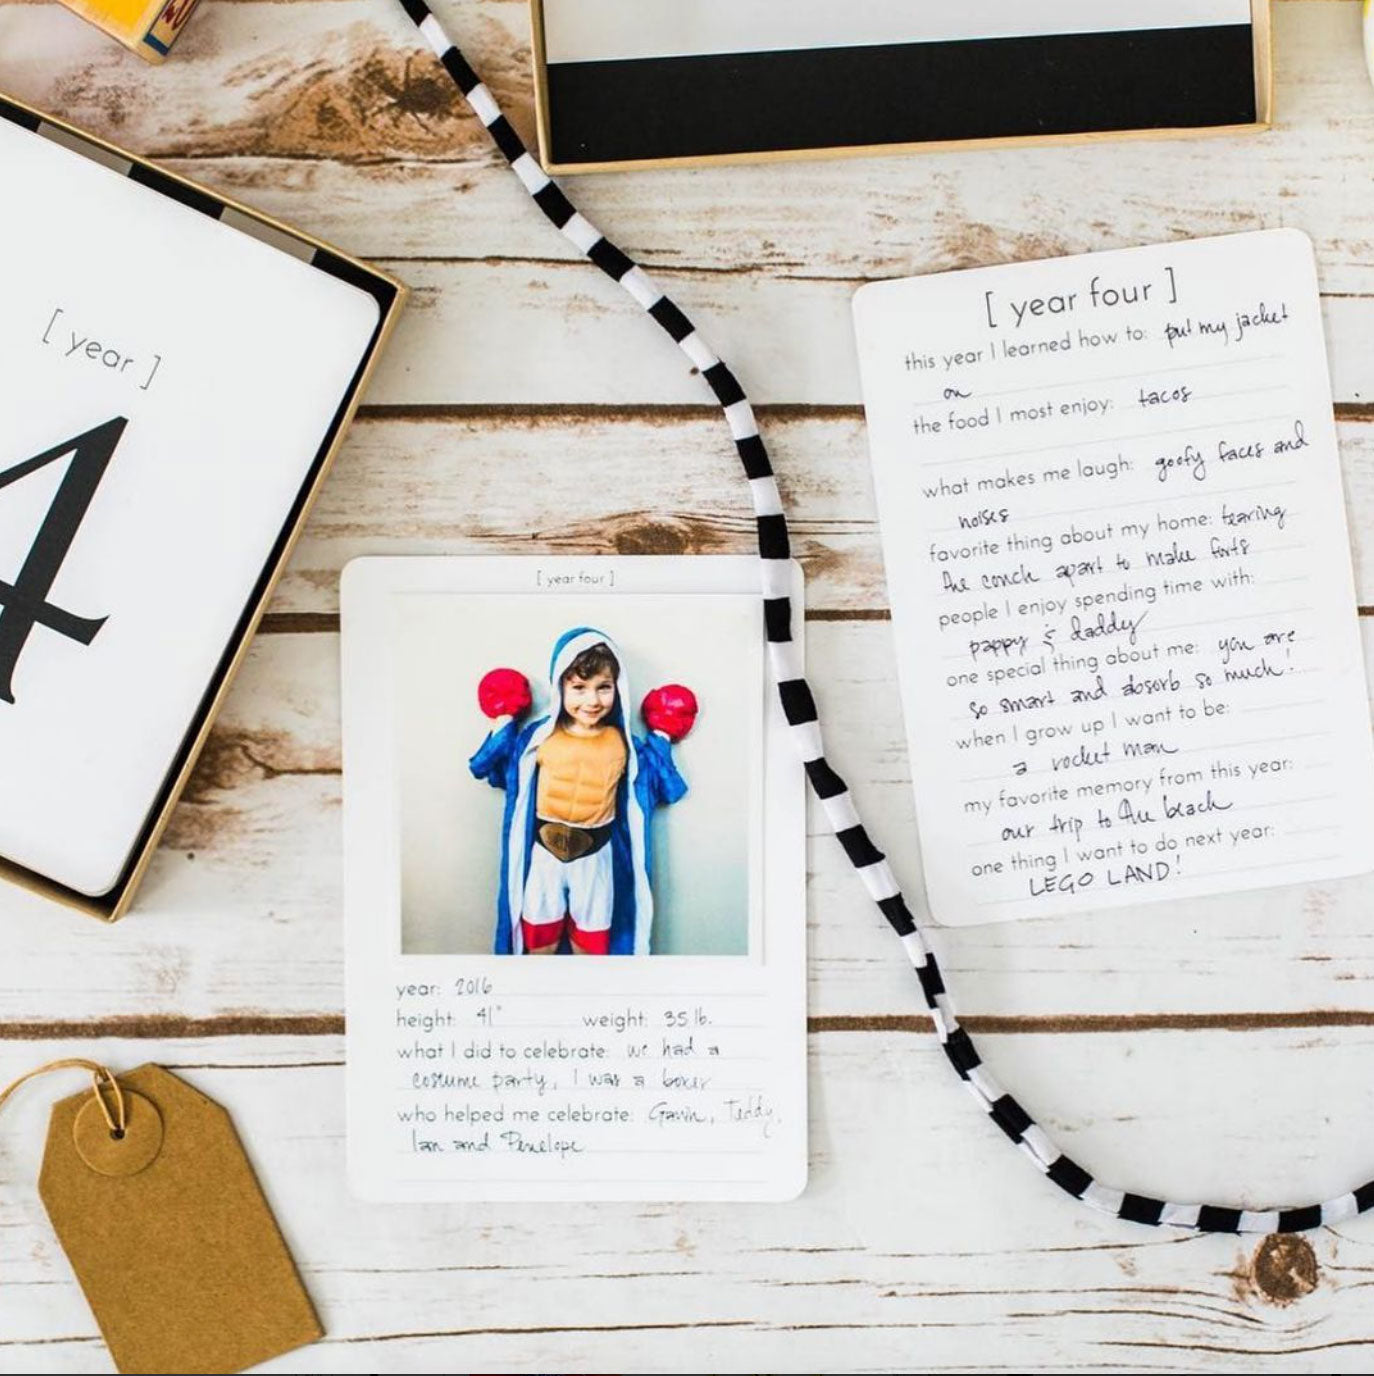 [ year ]
4
[ year four ]
this year I learned how to: put my jacket
on
the food I most enjoy: tacos
what makes me laugh: goofy faces and
noises
favorite thing about my home: tearing
the couch apart to make forts
people I enjoy spending time with:
pappy & daddy
one special thing about me: you are
so smart and absorb so much!
when I grow up I want to be:
a rocket man
my favorite memory from this year:
our trip to the beach
one thing I want to do next year:
LEGO LAND!
[ year four ]
year: 2016
height: 41" weight: 35 lb.
what I did to celebrate: we had a
costume party, I was a boxer
who helped me celebrate: Gavin, Teddy,
Ian and Penelope